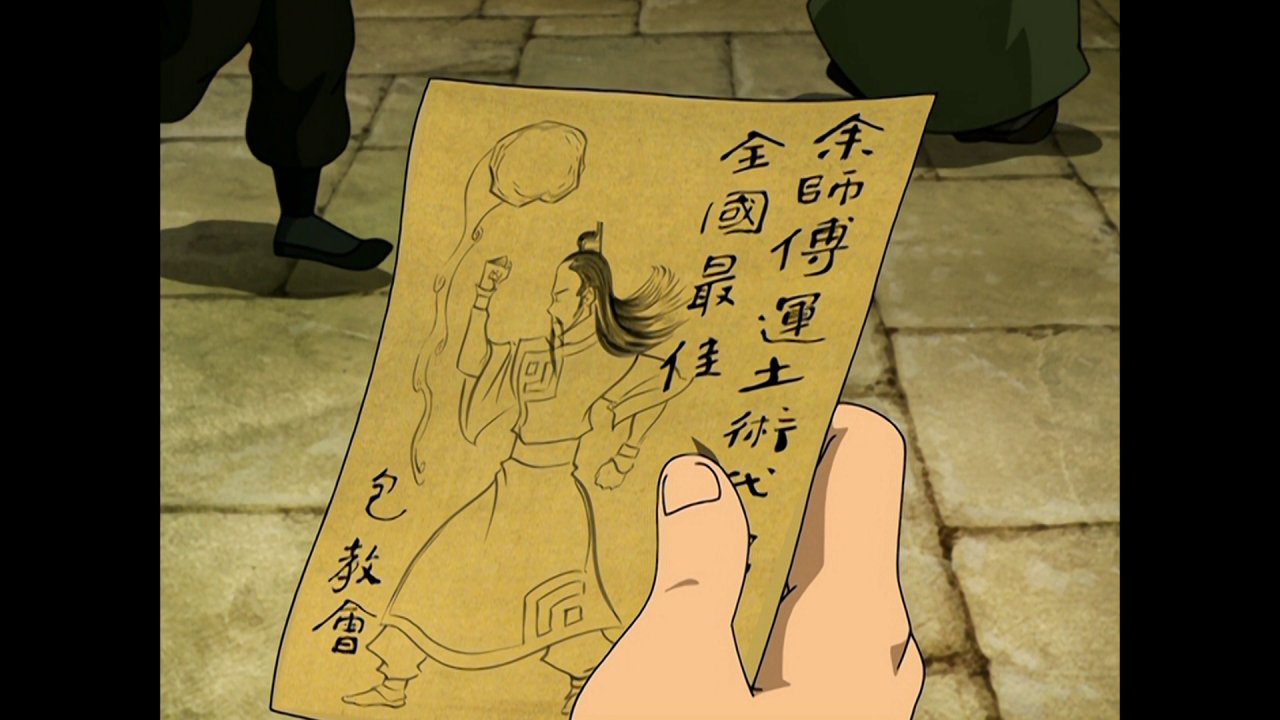 余師傅運土術
全國最佳
包教會